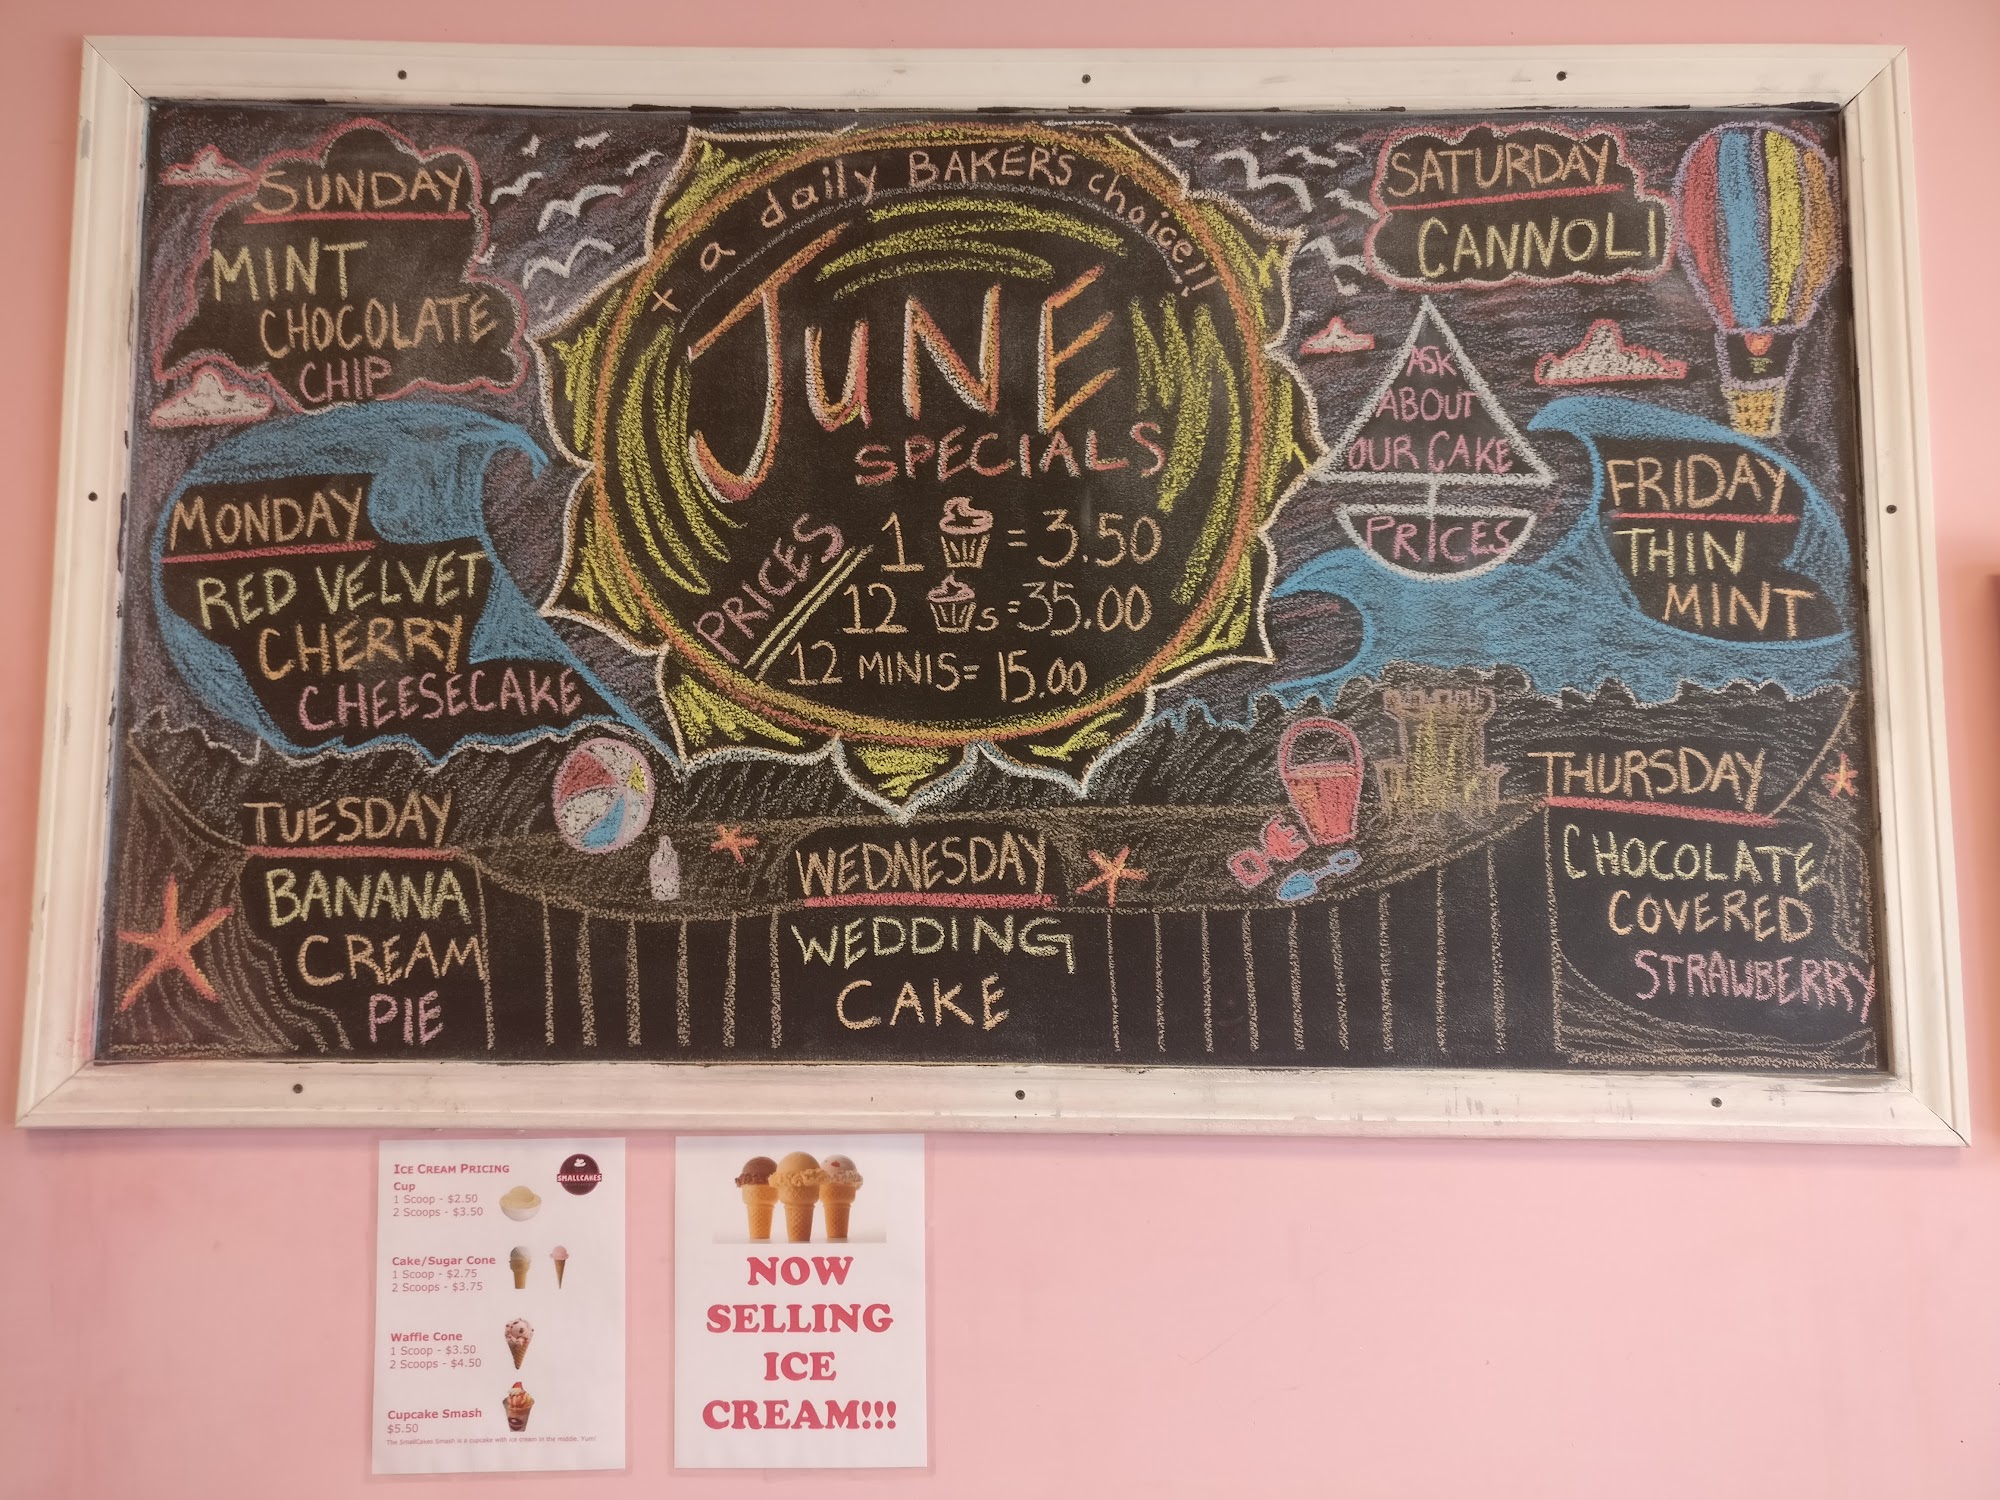 + a daily BAKER'S choice!!
JUNE
SPECIALS
PRICES
1 = 3.50
12 s = 35.00
12 MINIS = 15.00
SUNDAY
MINT
CHOCOLATE
CHIP
MONDAY
RED VELVET
CHERRY
CHEESECAKE
TUESDAY
BANANA
CREAM
PIE
WEDNESDAY
WEDDING
CAKE
THURSDAY
CHOCOLATE
COVERED
STRAWBERRY
FRIDAY
THIN
MINT
SATURDAY
CANNOLI
ASK
ABOUT
OUR CAKE
PRICES
ICE CREAM PRICING
SMALLCAKES
Cup
1 Scoop - $2.50
2 Scoops - $3.50
Cake/Sugar Cone
1 Scoop - $2.75
2 Scoops - $3.75
Waffle Cone
1 Scoop - $3.50
2 Scoops - $4.50
Cupcake Smash
$5.50
The SmallCakes Smash is a cupcake with ice cream in the middle. Yum!
NOW
SELLING
ICE
CREAM!!!